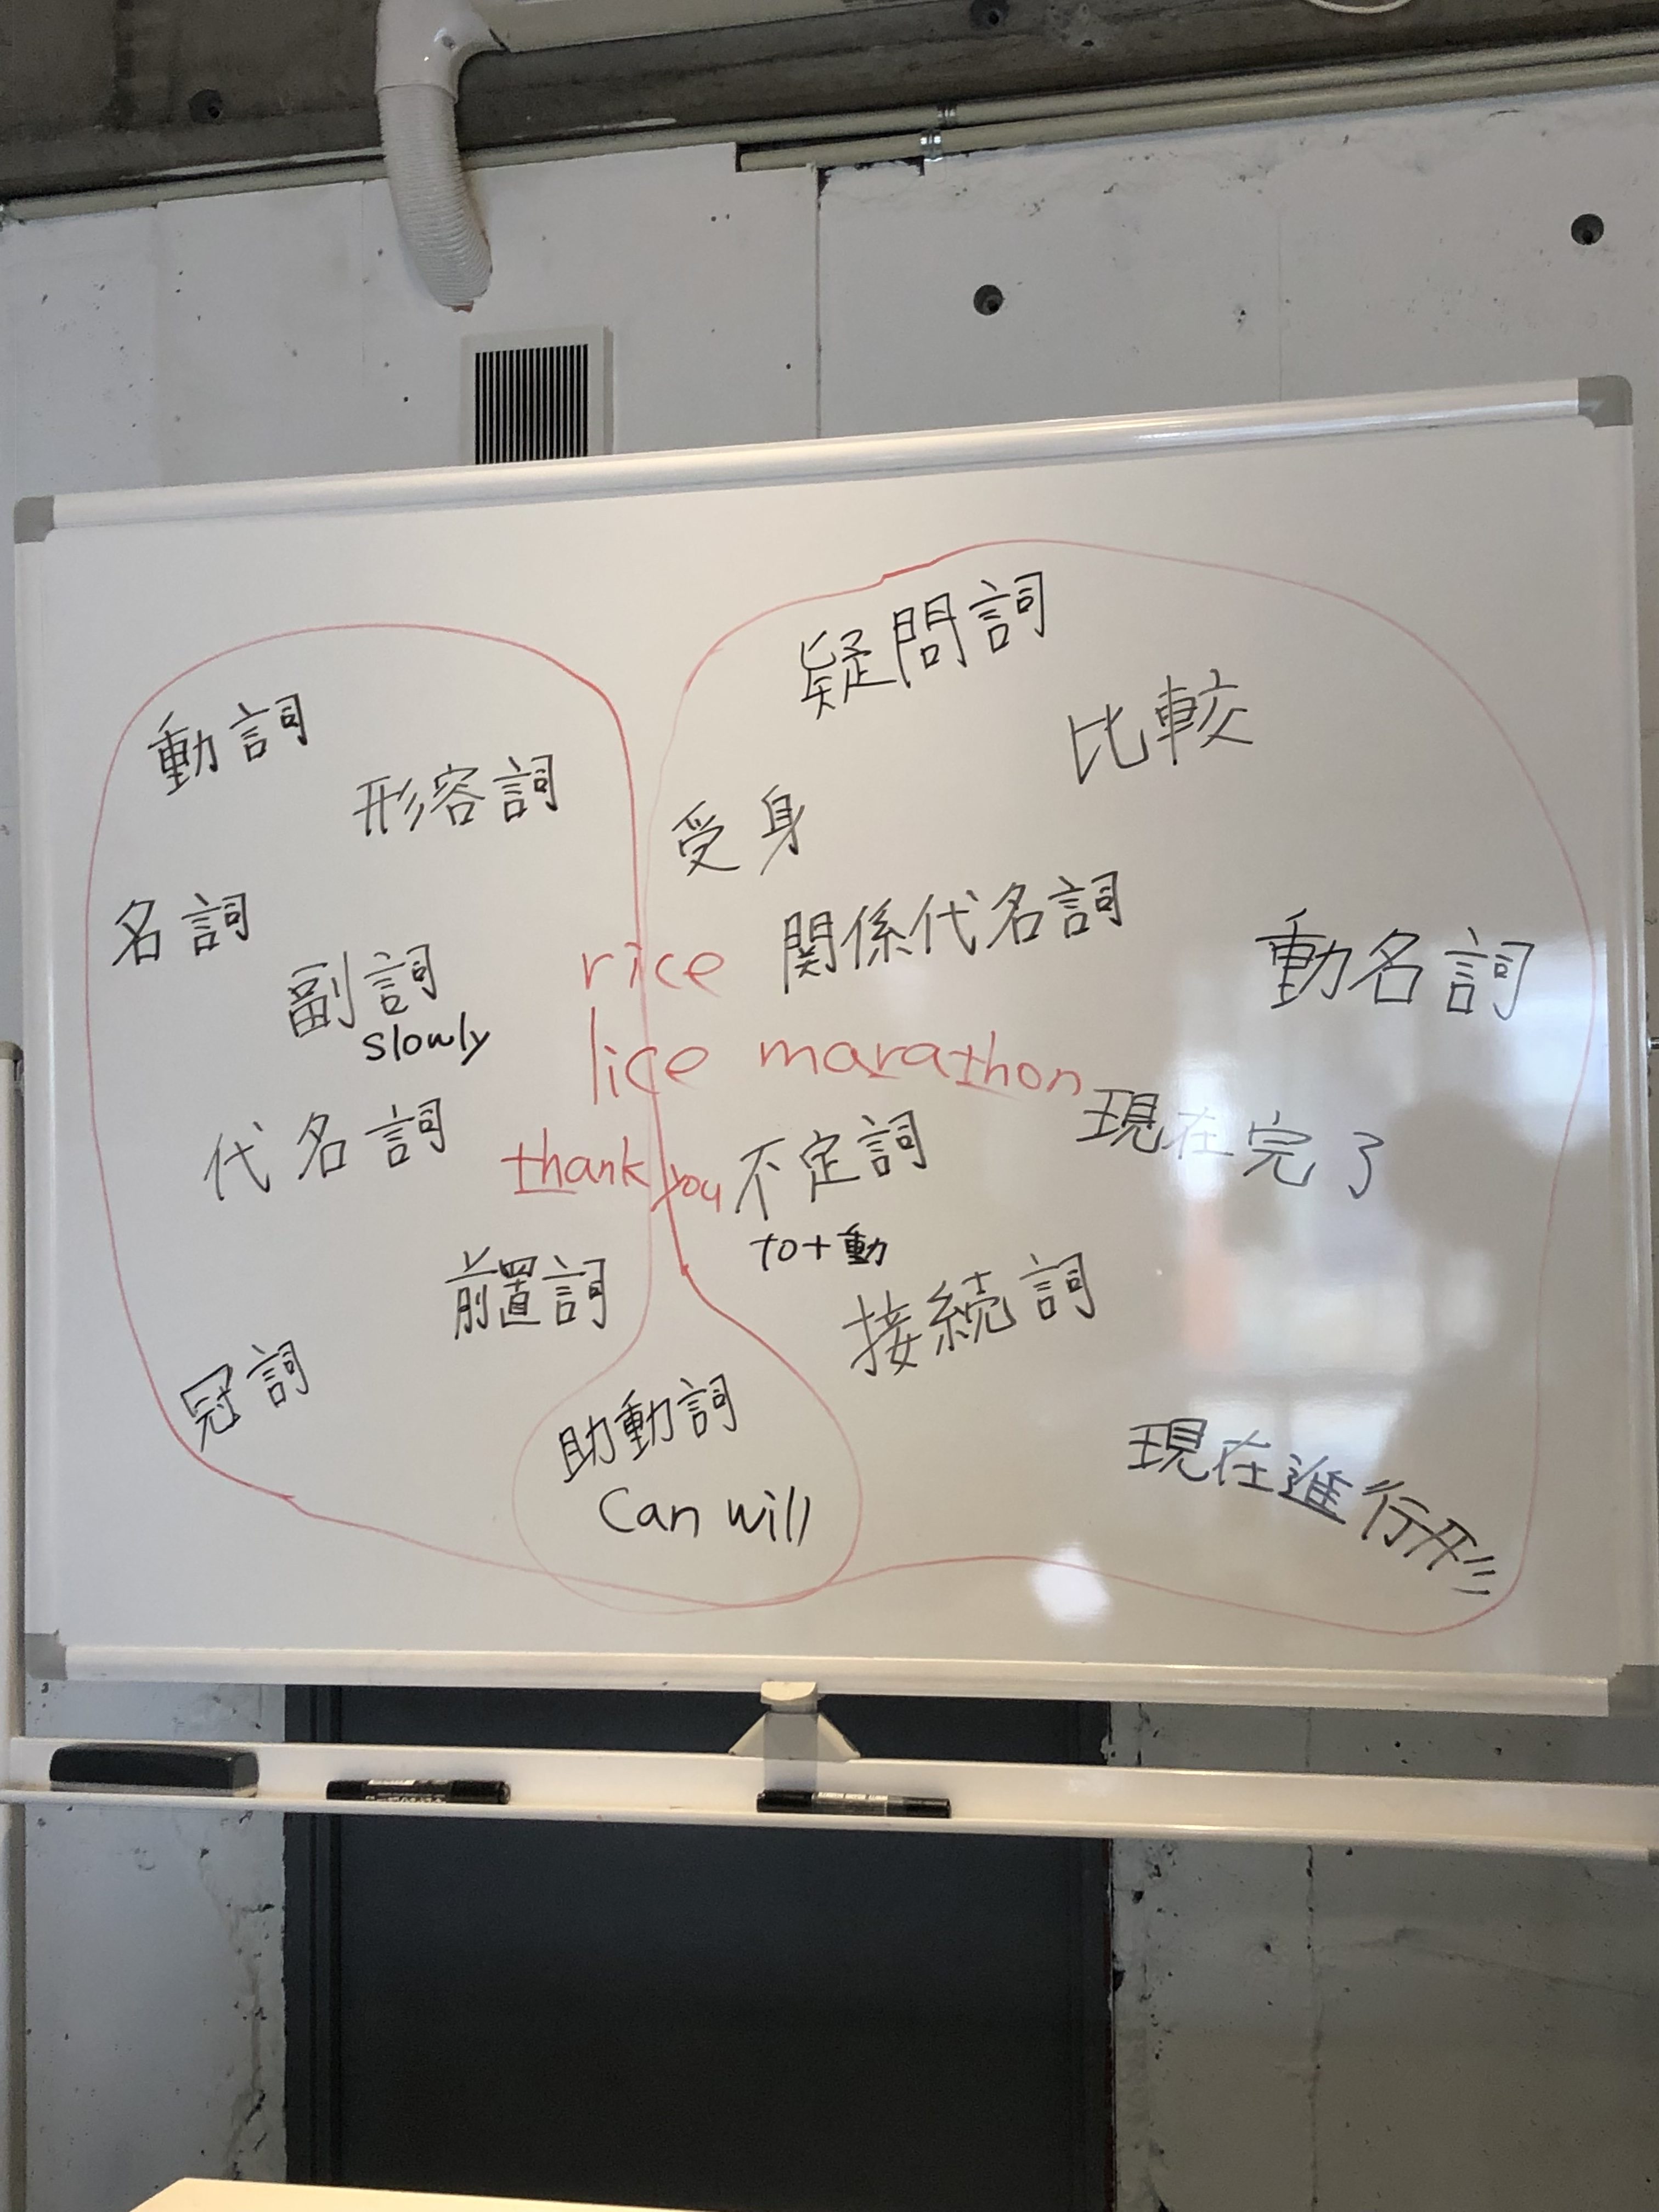 動詞
形容詞
名詞
副詞
slowly
代名詞
前置詞
冠詞
助動詞
Can will
rice
lice marathon
thank you
疑問詞
比較
受身
関係代名詞
動名詞
現在完了
不定詞
to+動
接続詞
現在進行形